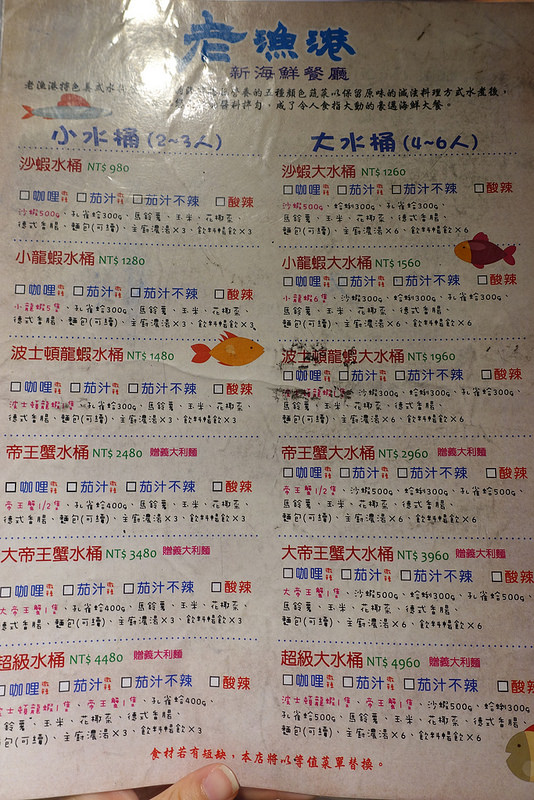 老漁港
新海鮮餐廳
老漁港特色美式水
養的五種顏色蔬菜以保留原味的減法料理方式水煮後，
料拌勻，成了令人食指大動的豪邁海鮮大餐。
小水桶(2~3人)
沙蝦水桶 NT$ 980
□咖哩微辣 □茄汁微辣 □茄汁不辣 □酸辣
沙蝦500g、孔雀蛤300g、馬鈴薯、玉米、花椰菜、
德式香腸、麵包(可續)、主廚濃湯×3、飲料暢飲×3
小龍蝦水桶 NT$ 1280
□咖哩微辣 □茄汁微辣 □茄汁不辣 □酸辣
小龍蝦5隻、孔雀蛤300g、馬鈴薯、玉米、花椰菜、
德式香腸、麵包(可續)、主廚濃湯×3、飲料暢飲×3
波士頓龍蝦水桶 NT$ 1480
□咖哩微辣 □茄汁微辣 □茄汁不辣 □酸辣
波士頓龍蝦1隻、孔雀蛤300g、馬鈴薯、玉米、花椰菜、
德式香腸、麵包(可續)、主廚濃湯×3、飲料暢飲×3
帝王蟹水桶 NT$ 2480 贈義大利麵
□咖哩微辣 □茄汁微辣 □茄汁不辣 □酸辣
帝王蟹1/2隻、孔雀蛤400g、馬鈴薯、玉米、花椰菜、
德式香腸、麵包(可續)、主廚濃湯×3、飲料暢飲×3
大帝王蟹水桶 NT$ 3480 贈義大利麵
□咖哩微辣 □茄汁微辣 □茄汁不辣 □酸辣
大帝王蟹1隻、孔雀蛤400g、馬鈴薯、玉米、花椰菜、
德式香腸、麵包(可續)、主廚濃湯×3、飲料暢飲×3
超級水桶 NT$ 4480 贈義大利麵
□咖哩微辣 □茄汁微辣 □茄汁不辣 □酸辣
波士頓龍蝦1隻、帝王蟹1隻、孔雀蛤400g、
馬鈴薯、玉米、花椰菜、德式香腸、
麵包(可續)、主廚濃湯×3、飲料暢飲×3
大水桶(4~6人)
沙蝦大水桶 NT$ 1260
□咖哩微辣 □茄汁微辣 □茄汁不辣 □酸辣
沙蝦500g、蛤蜊300g、孔雀蛤300g、
馬鈴薯、玉米、花椰菜、德式香腸、
麵包(可續)、主廚濃湯×6、飲料暢飲×6
小龍蝦大水桶 NT$ 1560
□咖哩微辣 □茄汁微辣 □茄汁不辣 □酸辣
小龍蝦6隻、沙蝦300g、蛤蜊300g、孔雀蛤300g、
馬鈴薯、玉米、花椰菜、德式香腸、
麵包(可續)、主廚濃湯×6、飲料暢飲×6
波士頓龍蝦大水桶 NT$ 1960
□咖哩微辣 □茄汁微辣 □茄汁不辣 □酸辣
沙蝦300g、蛤蜊300g、孔雀蛤300g、
馬鈴薯、玉米、花椰菜、德式香腸、
麵包(可續)、主廚濃湯×6、飲料暢飲×6
帝王蟹大水桶 NT$ 2960 贈義大利麵
□咖哩微辣 □茄汁微辣 □茄汁不辣 □酸辣
帝王蟹1/2隻、沙蝦500g、蛤蜊300g、孔雀蛤500g、
馬鈴薯、玉米、花椰菜、德式香腸、
麵包(可續)、主廚濃湯×6、飲料暢飲×6
大帝王蟹大水桶 NT$ 3960 贈義大利麵
□咖哩微辣 □茄汁微辣 □茄汁不辣 □酸辣
大帝王蟹1隻、沙蝦500g、蛤蜊300g、孔雀蛤500g、
馬鈴薯、玉米、花椰菜、德式香腸、
麵包(可續)、主廚濃湯×6、飲料暢飲×6
超級大水桶 NT$ 4960 贈義大利麵
□咖哩微辣 □茄汁微辣 □茄汁不辣 □酸辣
波士頓龍蝦1隻、帝王蟹1隻、沙蝦500g、蛤蜊300g
孔雀蛤500g、馬鈴薯、玉米、花椰菜、德式香腸、
麵包(可續)、主廚濃湯×6、飲料暢飲×6
食材若有短缺，本店將以等值菜單替換。